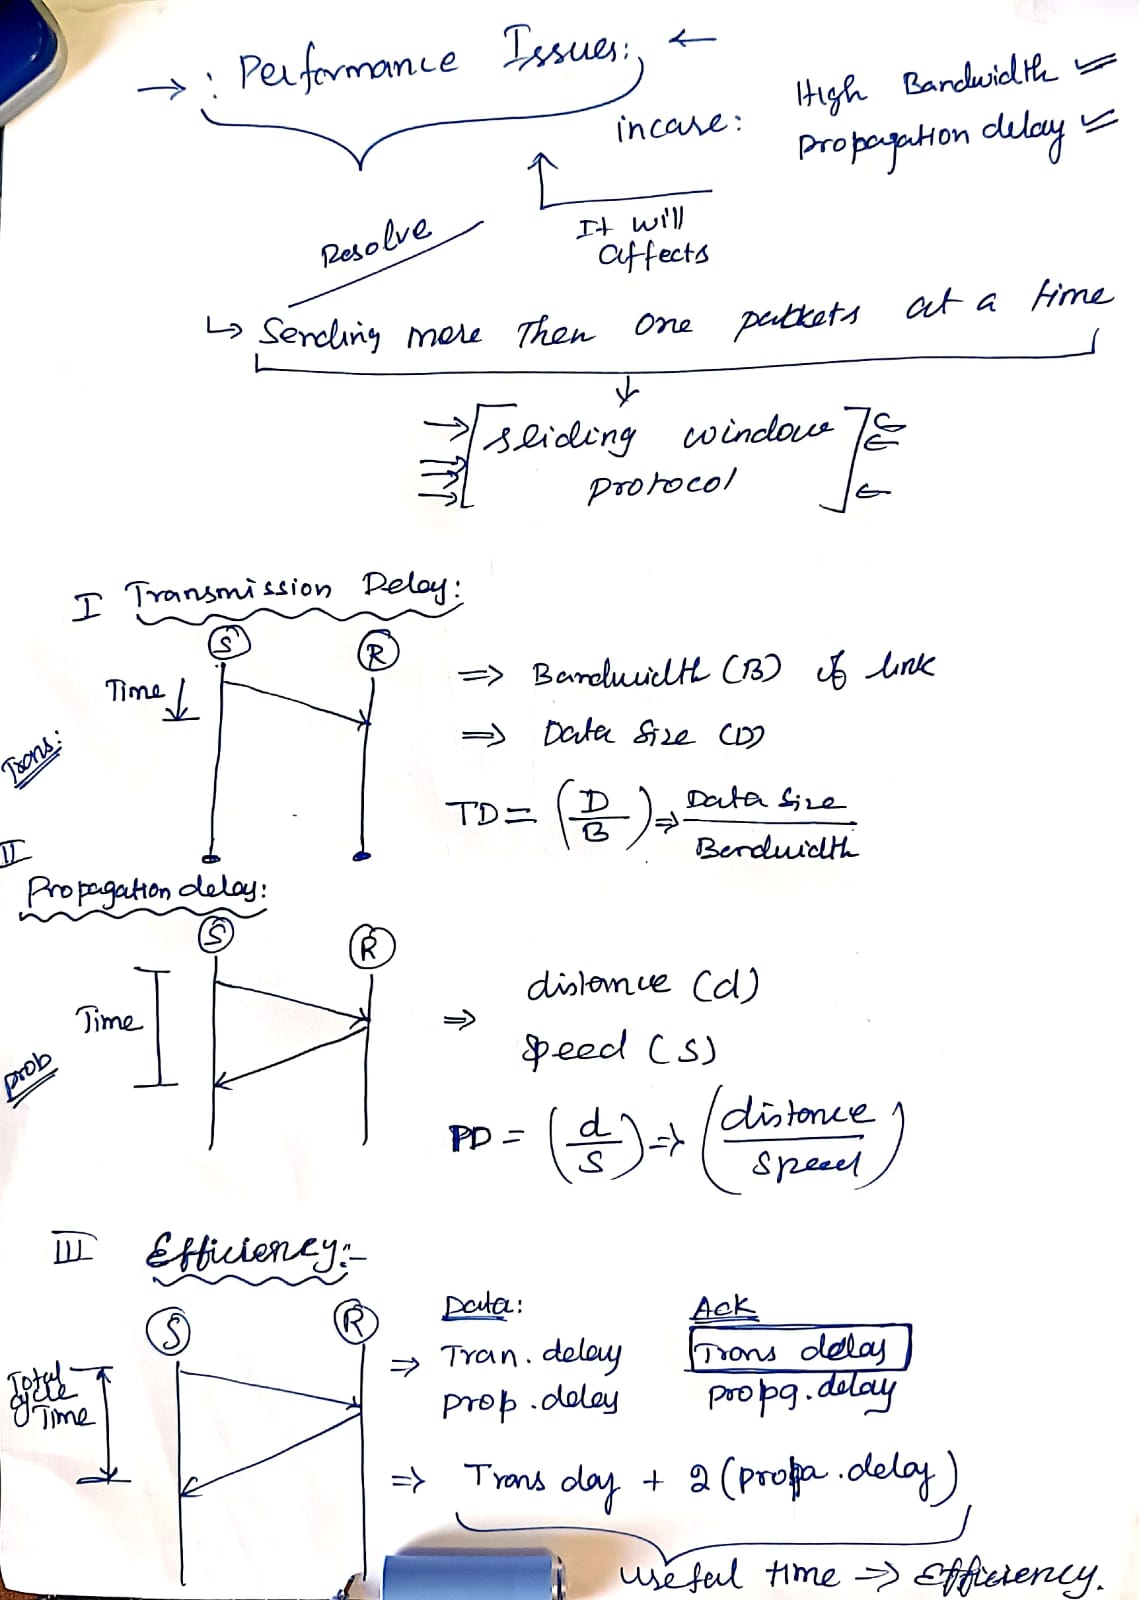 → : Performance Issues: ←
incase: High Bandwidth
propagation delay
It will
affects
Resolve
↳ Sending more Then one packets at a time
sliding window
protocol
I Transmission Delay:
S R
Time
Trans:
⇒ Bandwidth (B) of link
⇒ Data Size (D)
TD = (D/B) ⇒ Data Size / Bandwidth
II
Propagation delay:
S R
Time
prob
⇒ distance (d)
speed (S)
PD = (d/S) ⇒ (distance / speed)
III Efficiency:-
S R
Total
cycle
Time
Data: Ack
⇒ Tran. delay Trans delay
prop. delay propg. delay
⇒ Trans day + 2 (propa. delay)
useful time ⇒ Efficiency.